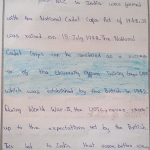 NCC in India was formed
with the National Cadet Corps Act of 1948. It
was raised on 15 July 1948. The National
Cadet Corps can be considered as a successor
of the University Officers Training Corps
which was established by the British in 1942.
During World War II, the UOTC never
up to the expectations set by the British.
This led to India that some better